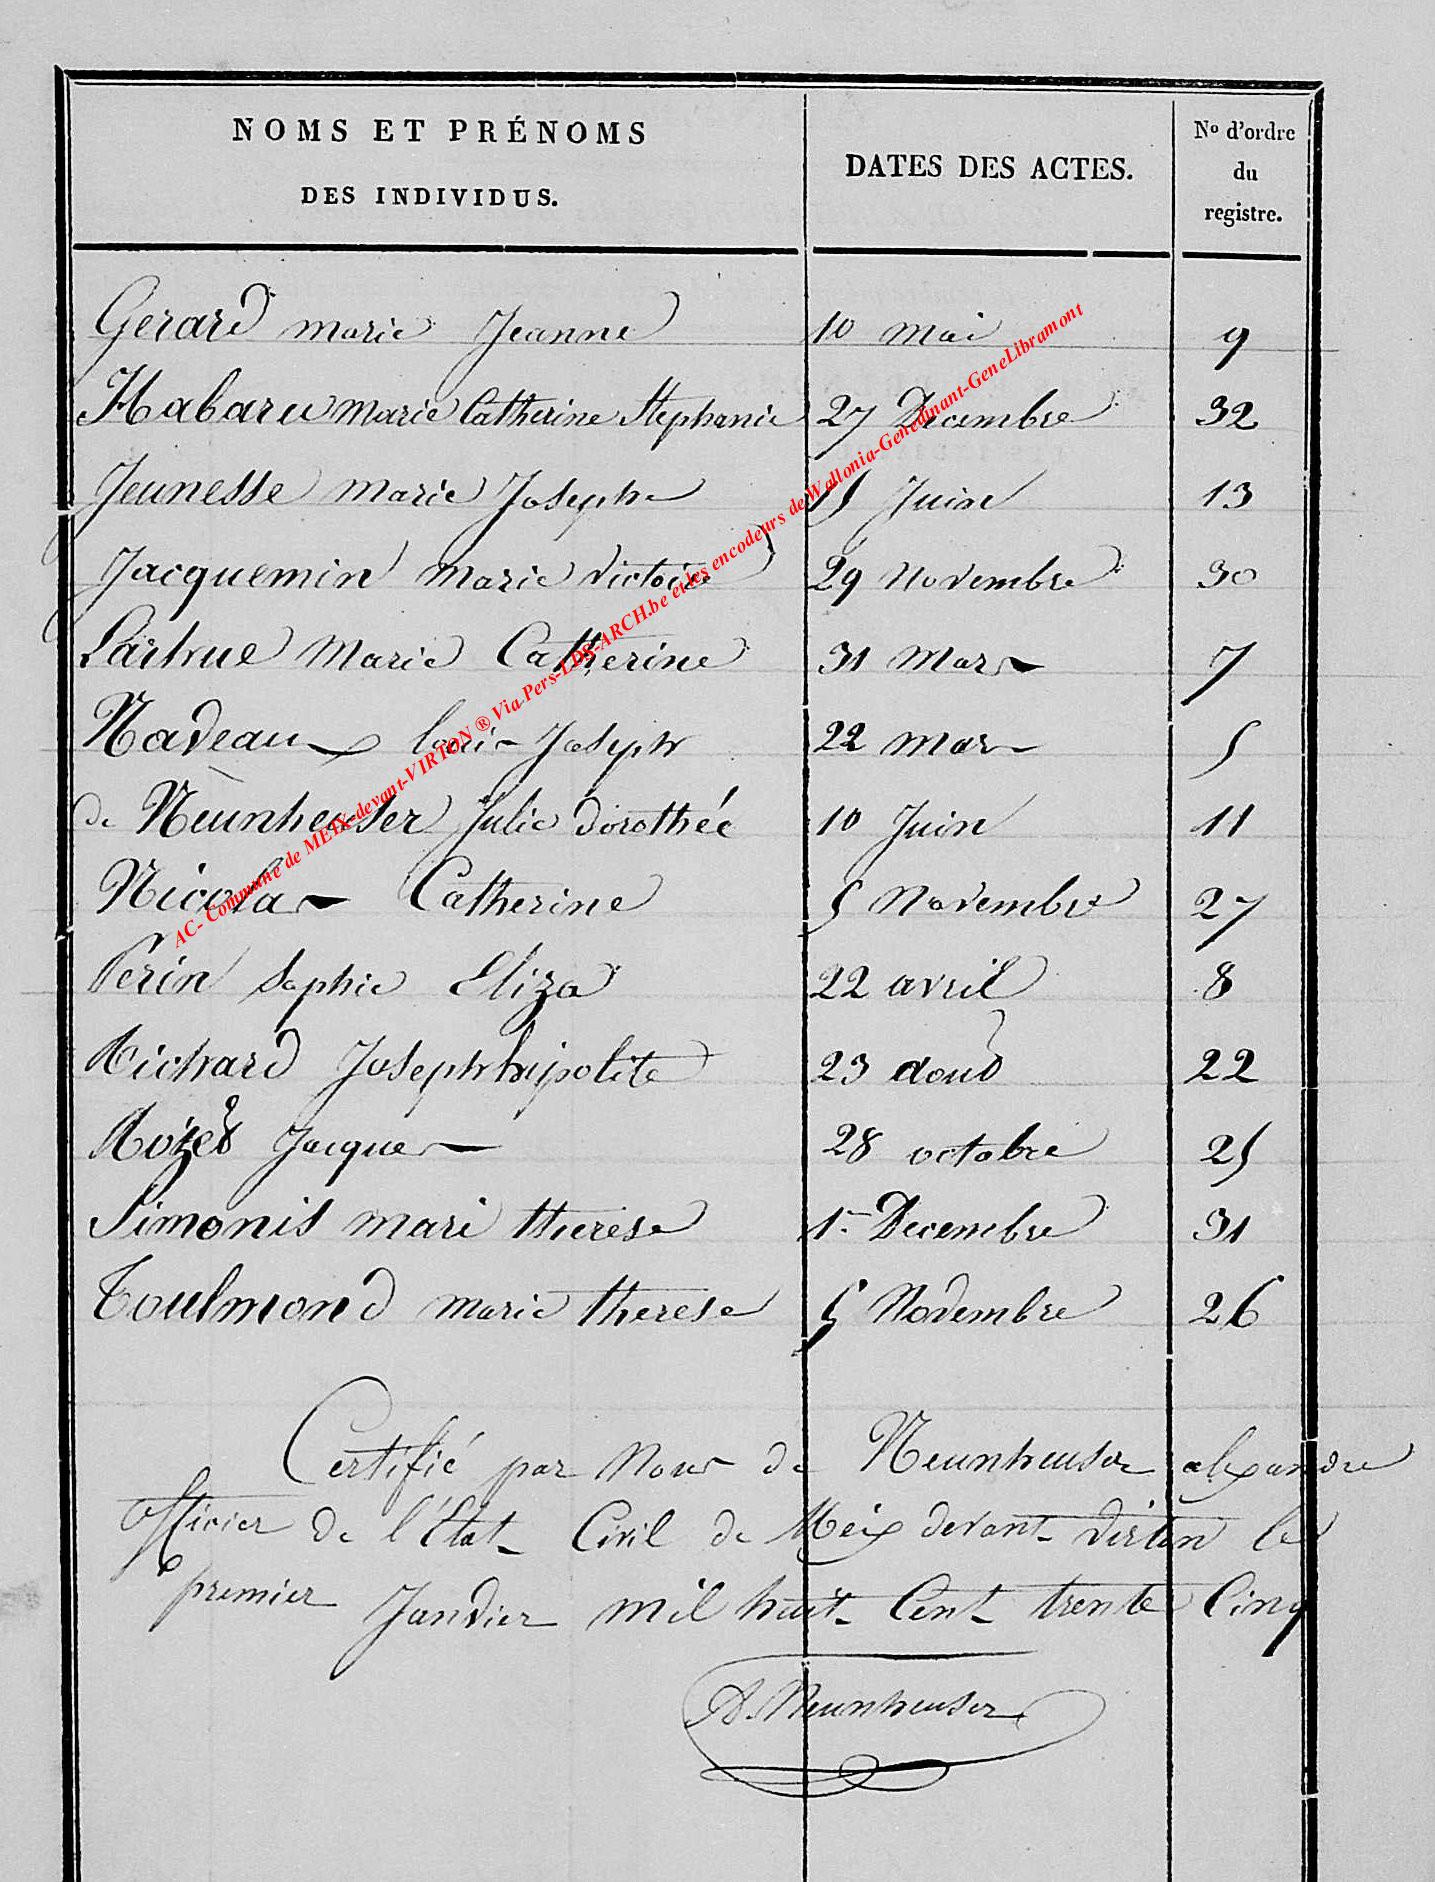 NOMS ET PRÉNOMS
DES INDIVIDUS.
DATES DES ACTES.
No d'ordre
du
registre.
Gerard marie Jeanne 10 mai 9
Habaru marie Catherine Stephanie 27 Decembre 32
Jeunesse marie Joseph 15 Juin 13
Jacquemin marie victoire 29 Novembre 30
Larhue Marie Catherine 31 Mars 7
Nadeaux louis Joseph 22 mars 5
de Neunheuser Julie dorothée 10 Juin 11
Nicolas Catherine 5 Novembre 27
Perin Sophie Eliza 22 avril 8
Richard Joseph hypolite 23 aout 22
Jacques 28 octobre 25
Simonis mari therese 1er Decembre 31
Toulmond marie therese 5 Novembre 26
Certifié par Nous de Neunheuser alexandre
officier de l'État Civil de Meix devant Virton le
premier Janvier mil huit Cent trente Cinq
A. Neunheuser
AC- Commune de MEIX-devant-VIRTON ® Via Pers-LDS-ARCH.be et les encodeurs de Wallonia-Genedinant-GeneLibramont